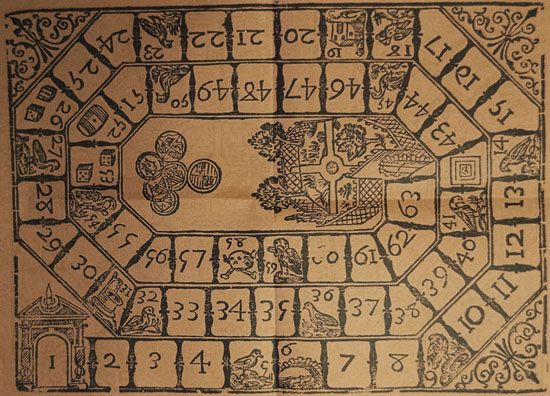 1 2 3 4 5 6 7 8 9
10 11 12 13 14 15 16 17
18 19 20 21 22 23 24
25 26 27 28 29 30
32 33 34 35 36 37 38
39 40 41 43 44
45 46 47 48 49 50
51 52 53 55
56 57 58 60 61 62 63